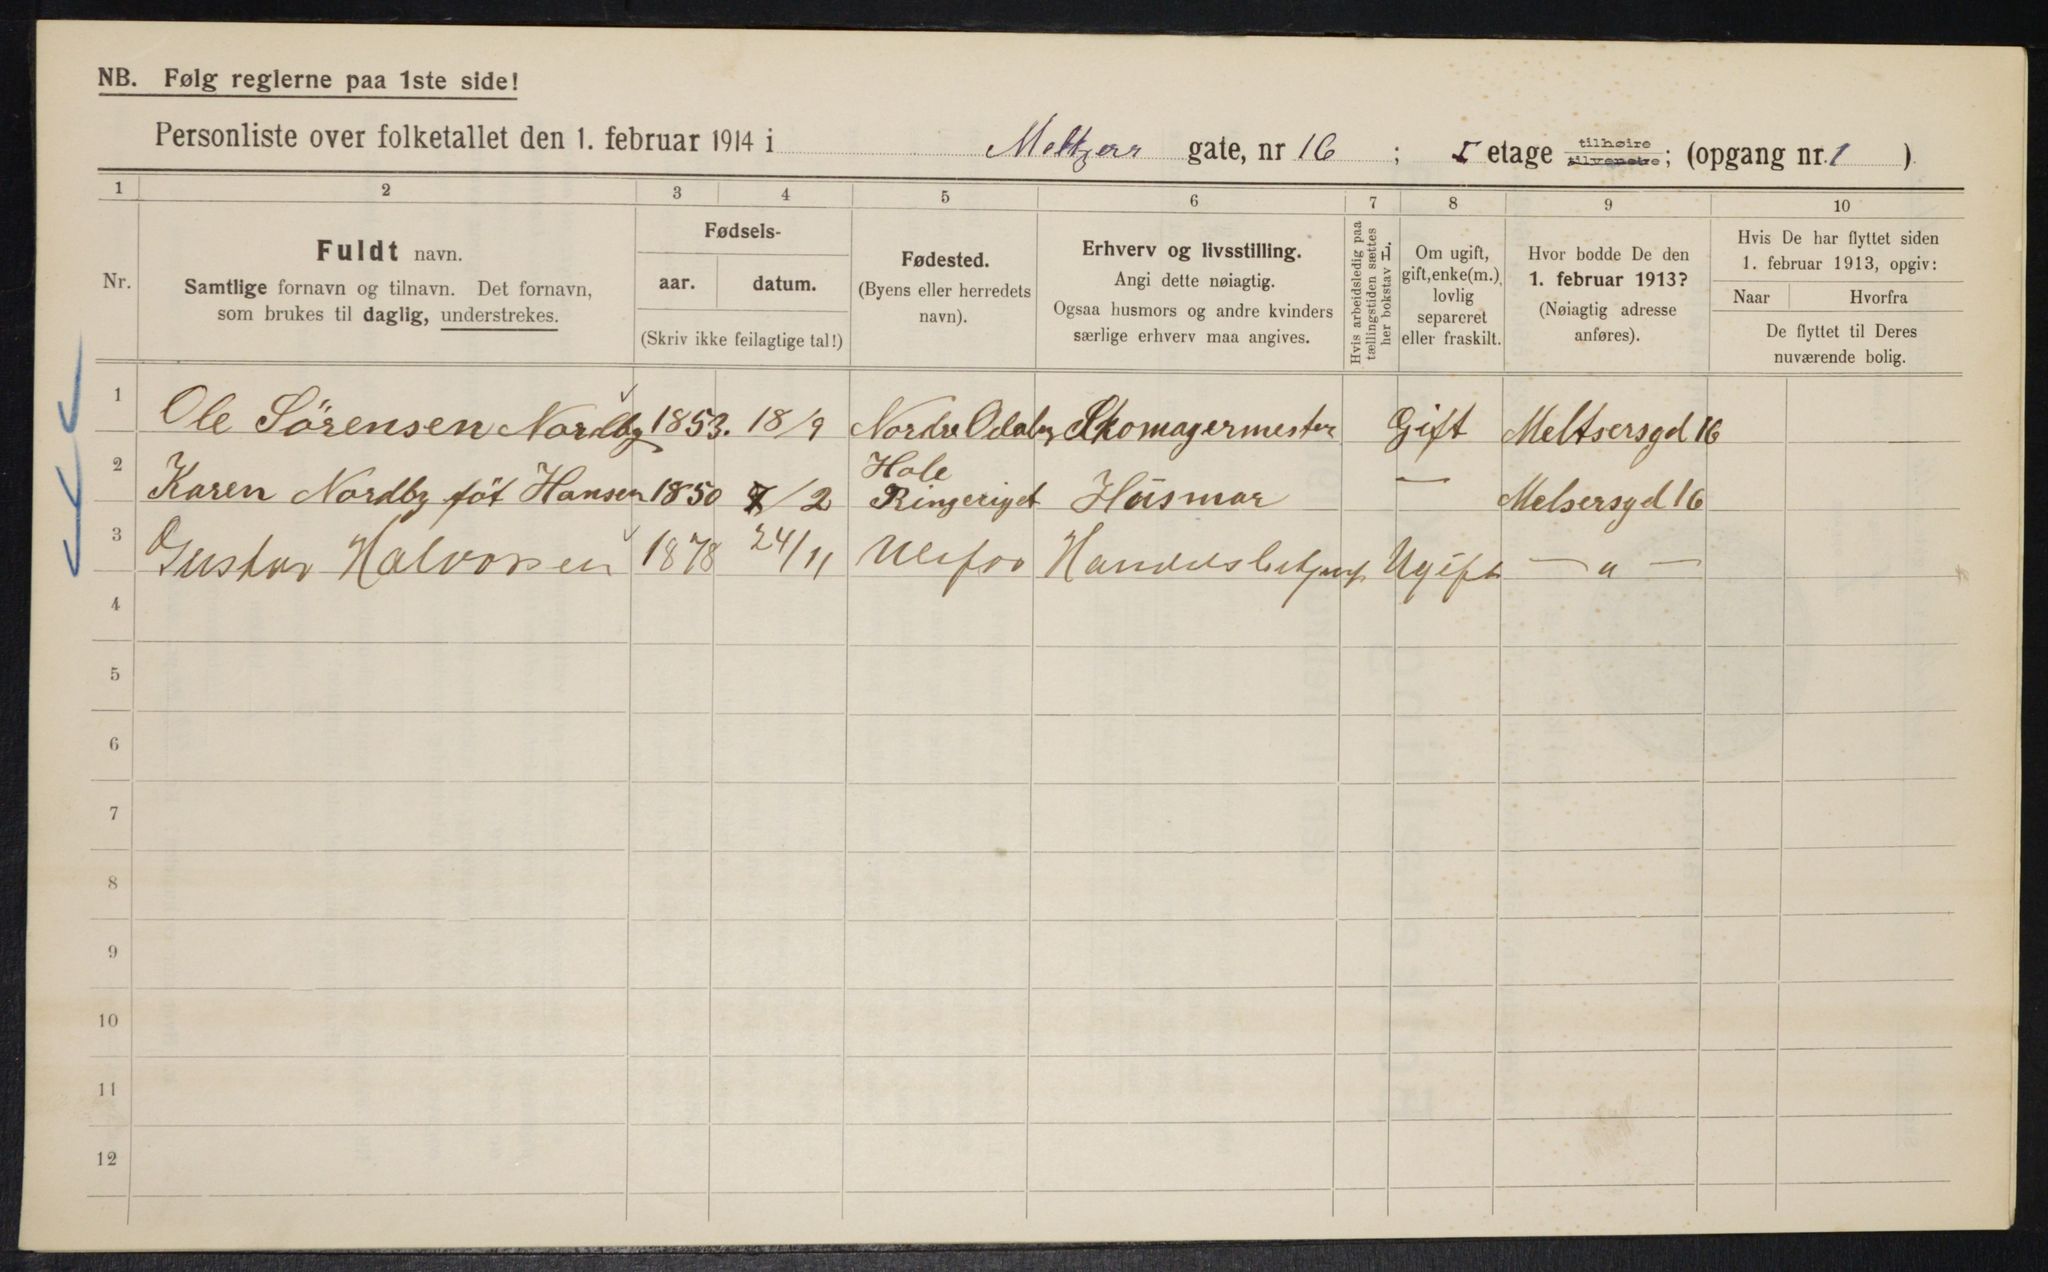 NB. Følg reglerne paa 1ste side!
Personliste over folketallet den 1. februar 1914 i Meltzers gate, nr 16 ; I etage tilhøire tilvenstre; (opgang nr. 1 )
1 2 3 4 5 6 7 8 9 10
Nr.
Fuldt navn.
Samtlige fornavn og tilnavn. Det fornavn,
som brukes til daglig, understrekes.
Fødsels-
aar. datum.
(Skriv ikke feilagtige tal!)
Fødested.
(Byens eller herredets
navn).
Erhverv og livsstilling.
Angi dette nøiagtig.
Ogsaa husmors og andre kvinders
særlige erhverv maa angives.
Hvis arbeidsledig paa
tællingstiden sættes
her bokstav L.
Om ugift,
gift, enke(m.),
lovlig
separeret
eller fraskilt.
Hvor bodde De den
1. februar 1913?
(Nøiagtig adresse
anføres).
Hvis De har flyttet siden
1. februar 1913, opgiv:
Naar Hvorfra
De flyttet til Deres
nuværende bolig.
1 Ole Sörensen Nordby 1853. 18/9 Nordre Skomagermester Gift Meltsersgd 16
Hole
2 Karen Nordby föt Hansen 1850 /2 Ringeriget Húsmor — Melsersgd 16
3 Gustav Halvorsen 1878 24/11 Ulefos Ugift — " —
4
5
6
7
8
9
10
11
12